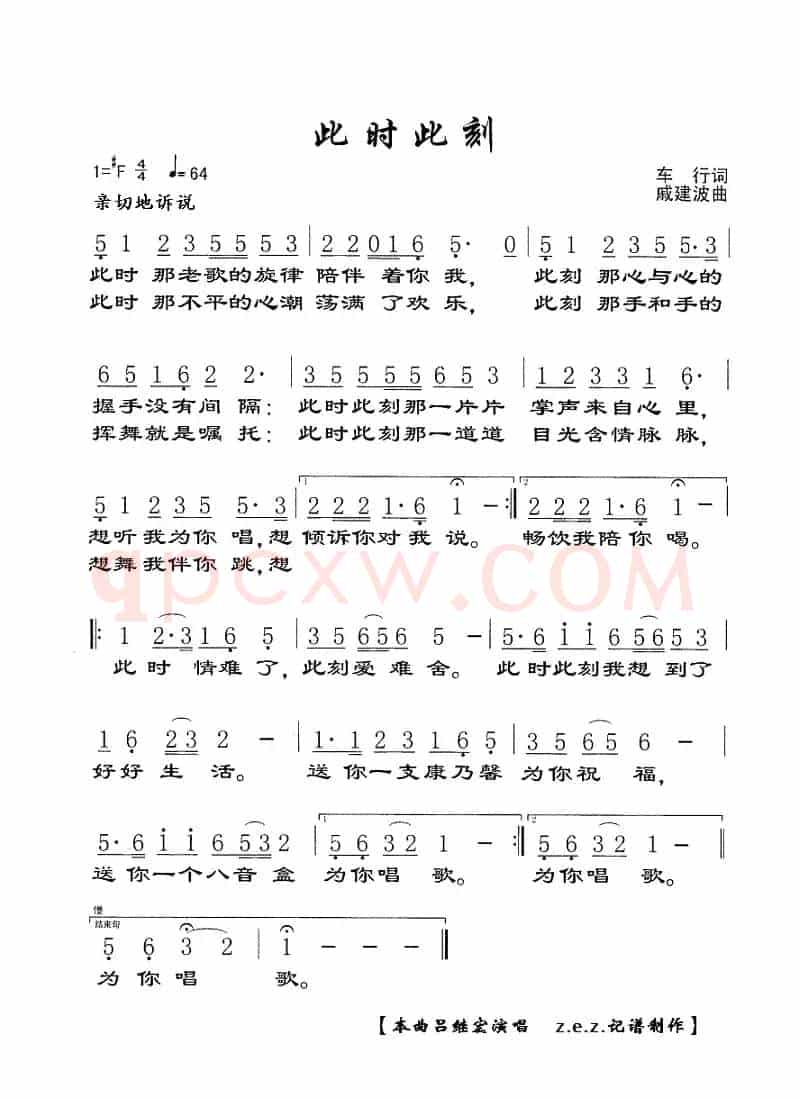 此时此刻
1=#F 4/4 ♩=64
车 行词
亲切地诉说
戚建波曲
5 1 2 3 5 5 5 3 | 2 2 0 1 6 5· 0 | 5 1 2 3 5 5·3 |
此时 那老歌的旋律 陪伴 着你我, 此刻 那心与心的
此时 那不平的心潮 荡满 了欢乐, 此刻 那手和手的
6 5 1 6 2 2· | 3 5 5 5 5 6 5 3 | 1 2 3 3 1 6· |
握手没有间 隔; 此时此刻那一片片 掌声来自心 里,
挥舞就是嘱 托; 此时此刻那一道道 目光含情脉 脉,
1 2
5 1 2 3 5 5·3 | 2 2 2 1·6 1 - :‖ 2 2 2 1·6 1 - |
想听我为你 唱,想 倾诉你对我 说。 畅饮我陪你喝。
想舞我伴你 跳,想
qpcxw.COM
‖: 1 2·3 1 6 5 | 3 5 5 6 5 6 5 - | 5·6 i i 6 5 6 5 3 |
此 时 情难了, 此刻爱 难 舍。 此时此刻我想 到了
1 6 2 3 2 - | 1·1 2 3 1 6 5 | 3 5 6 5 6 - |
好好 生 活。 送 你一支康乃馨 为你祝 福,
1 2
5·6 i i 6 5 3 2 | 5 6 3 2 1 - :‖ 5 6 3 2 1 - ‖
送 你一个八音 盒 为你唱 歌。 为你唱 歌。
慢
结束句
5 6 3 2 | 1 - - - ‖
为 你 唱 歌。
【本曲吕继宏演唱 z.e.z.记谱制作】